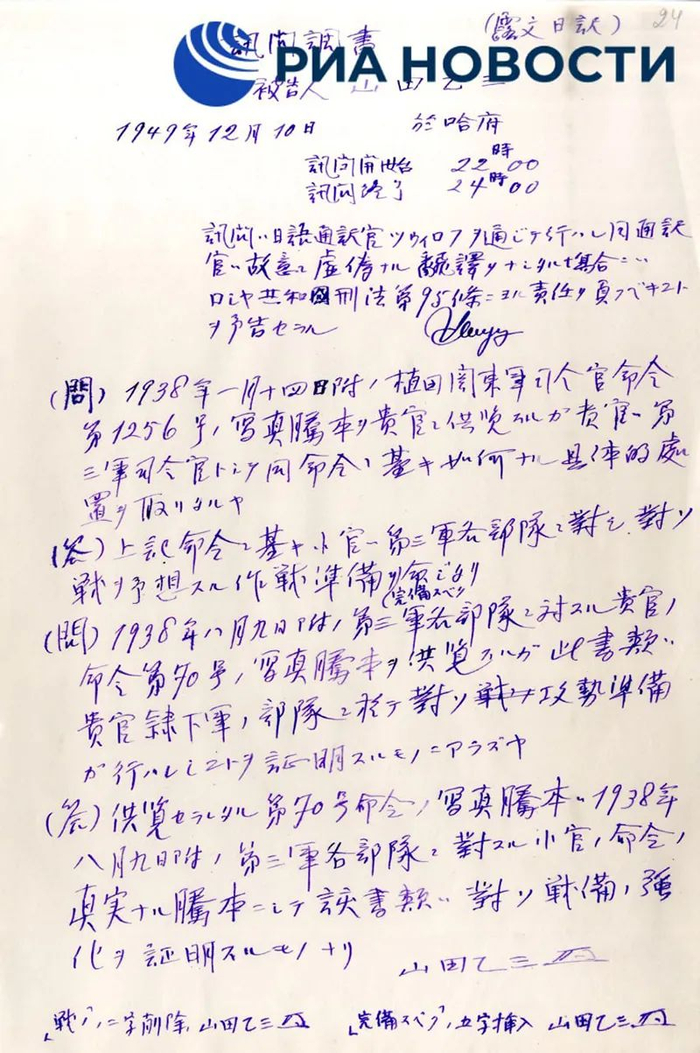 24
(露文日訳)
訊問調書
РИА НОВОСТИ
被告人 山田乙三
1949年12月10日 於哈府
訊問開始 22時00
訊問終了 24時00
訊問ハ日語通訳官ツウィロフヲ通ジテ行ハレ同通訳
官ハ故意ニ虚偽ナル飜譯ヲナシタル場合ニハ
ロシヤ共和國刑法第95條ニヨル責任ヲ負フベキコト
ヲ予告セラル
(問) 1938年一月十四日附ノ植田関東軍司令官命令
第1256号ノ写真謄本ヲ貴官ニ供覧スルガ貴官ハ第
三軍司令官トシテ同命令ニ基キ如何ナル具体的處
置ヲ取リタルヤ
(答) 上記命令ニ基キ小官ハ第三軍各部隊ニ對シ對ソ
戦ヲ予想スル作戦準備ヲ命ジタリ
(完備スベク)
(問) 1938年八月九日附ノ第三軍各部隊ニ対スル貴官ノ
命令第70号ノ写真謄本ヲ供覧スルガ此書類ハ
貴官隷下軍ノ部隊ニ於テ對ソ戦ノ攻勢準備
ガ行ハレシコトヲ証明スルモノニアラズヤ
(答) 供覧セラレタル第70号命令ノ写真謄本ハ1938年
八月九日附ノ第三軍各部隊ニ對スル小官ノ命令ノ
真実ナル謄本ニシテ該書類ハ對ソ戦備ノ強
化ヲ証明スルモノナリ
山田乙三
「戦ノ」ニ字削除 山田乙三 「完備スベク」五字挿入 山田乙三